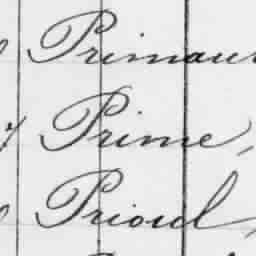 Primau
7 Prime,
Prioul,